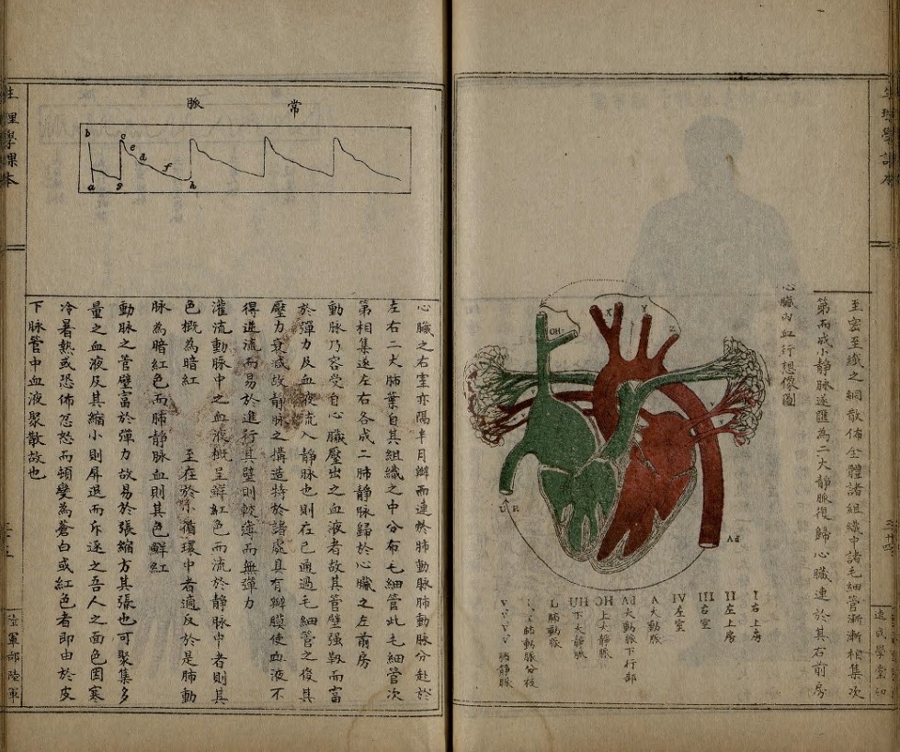 生理學課本
至密至纖之網散佈全體諸組織中諸毛細管漸漸相集次
第而成小靜脉遂匯為二大靜脉復歸心臟連於其右前房
心臟內血行想像圖
OH
X
Y
Z
R
Ad
I 右上房
II 左上房
III 右室
IV 左室
A 大動脉
Ad 大動脉下行部
OH 上大靜脉
UH 下大靜脉
L 肺動脉
肺動脉分枝
V V V 肺靜脉
遠武學堂
常脉
b
a
g
c
e
d
f
h
心臟之右室亦隔半月瓣而連於肺動脉肺動脉分赴於
左右二大肺葉自其組織之中分布毛細管此毛細管次
第相集返左右各成二肺靜脉歸於心臟之左前房
動脉乃容受自心臟壓出之血液者故其管壁強靱而富
於彈力及血液流入靜脉也則在已通過毛細管之後其
壓力衰減故靜脉之構造特於諸處具有瓣膜使血液不
得逆流而易於進行其壁則較薄而無彈力
灌流動脉中之血液概呈鮮紅色而流於靜脉中者則其
色概為暗紅 至在於肺循環中者適反於是肺動
脉為暗紅色而肺靜脉血則其色鮮紅
動脉之管壁富於彈力故易於張縮方其張也可聚集多
量之血液及其縮小則屏退而斥逐之吾人之面色因寒
冷暑熱或恐怖忿怒而頓變為蒼白或紅色者即由於皮
下脉管中血液聚散故也
生理學課本
陸軍部陸軍